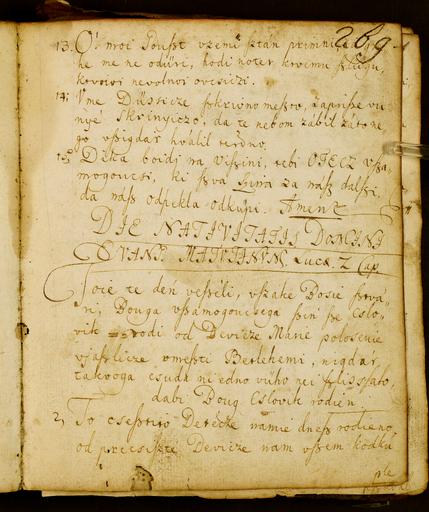 269.
13. O! moi Poušt vzemi sztan primni,
he me ne oduri, hodi noter krvimu szlugu,
kovoioi nevolnoi ovesiczi.
14; Vme Dússicze szkrivno mesto, zapri sze vu
nyé Skrinyiczo, da te nebom zábil zátone,
go vszigdár hválil terdno.
15. Dika boidi na viszini, tebi OTECZ vsza,
mogoucsi, ki szva Sina za nász dal szi,
da nász odpekla odkupi. Amen
DIE NATIVITATIS DOMINI
EVANG. MATUTINUM, Luca. 2 Cap.
Toie te dén veszéli, vszake Bosie sztvá
ri, Douga vszamogoucsega szin sze cslo,
vik rodi od Devicze Marie polosenie
vjaszlicze vmeszti Betlehemi, nigdár
takvoga csuda ni edno vúho nei szlissalo,
dabi Boug Cslovik rodien.
2, To csesztito Detécze namie dnesz rodieno,
od precsiszte Devicze nam vszem kodkú
ple